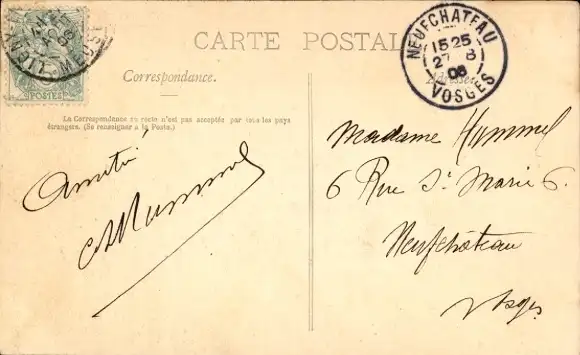 CARTE POSTALE
Correspondance.
Adresse
La Correspondance au recto n'est pas acceptée par tous les pays
étrangers. (Se renseigner à la Poste.)
POSTES
MEUSE
NEUFCHATEAU
15 25
27 - 8
08
VOSGES
Amitié
Hummel
Madame Hummel
6 Rue St Marie 6.
Neufchâteau
Vosges